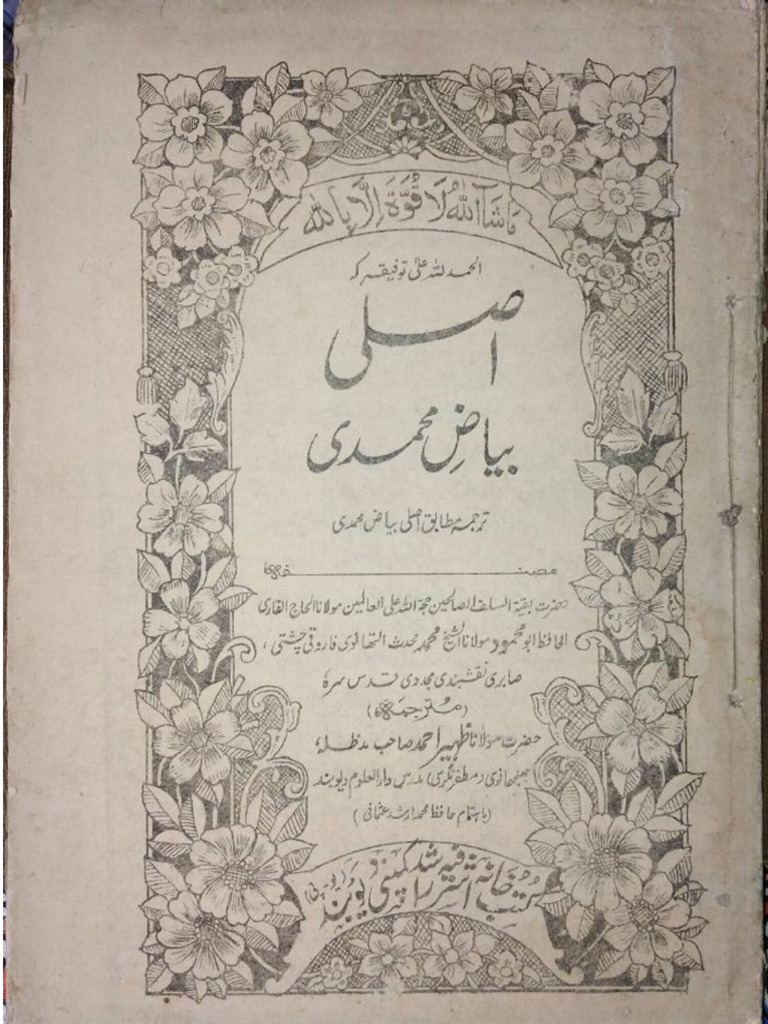 مَاشَآءَ اللّٰهُ لَا قُوَّةَ اِلَّا بِاللّٰهِ
الحمد للہ علیٰ توفیقہ کہ
اصلی
بیاضِ محمدی
ترجمۂ مطابق اصلی بیاض محمدی
مصنفہ
حضرت بقیۃ السلف الصالحین حجۃ اللہ علی العالمین مولانا الحاج القاری
الحافظ ابو محمود مولانا الشیخ محمد محدث التھانوی فاروقی چشتی ،
صابری نقشبندی مجددی قدس سرہٗ
(مترجمہ)
حضرت مولانا ظہیر احمد صاحب مدظلہٗ
جھنجھانوی (مظفرنگری) مدرس دارالعلوم دیوبند
(باہتمام حافظ محمد ارشد عثمانی)
کتب خانہ اشرفیہ راشد کمپنی دیوبند (یو،پی)